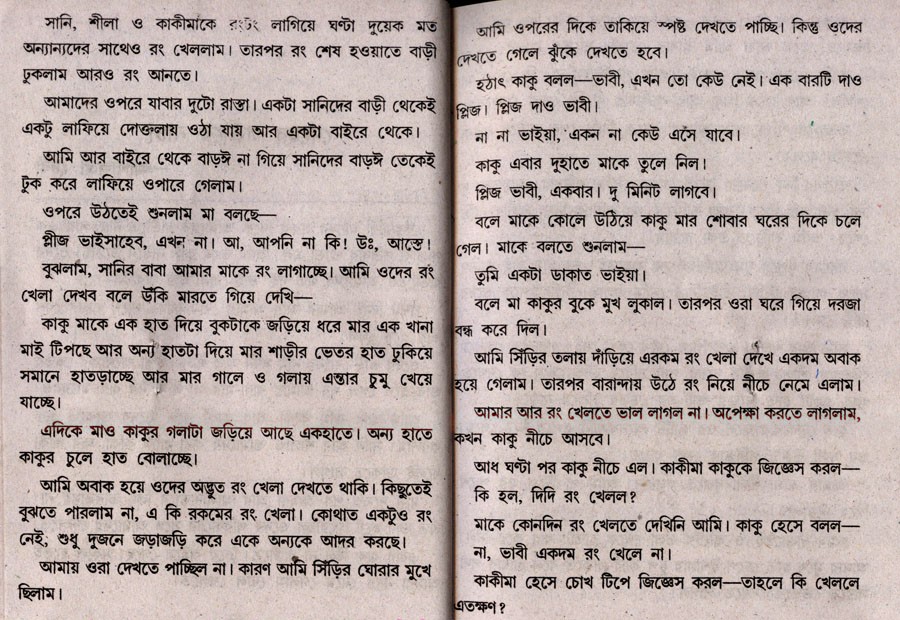 সানি, শীলা ও কাকীমাকে রংটং লাগিয়ে ঘণ্টা দুয়েক মত
অন্যান্যদের সাথেও রং খেললাম। তারপর রং শেষ হওয়াতে বাড়ী
ঢুকলাম আরও রং আনতে।
আমাদের ওপরে যাবার দুটো রাস্তা। একটা সানিদের বাড়ী থেকেই
একটু লাফিয়ে দোক্তলায় ওঠা যায় আর একটা বাইরে থেকে।
আমি আর বাইরে থেকে বাড়ঈ না গিয়ে সানিদের বাড়ঈ তেকেই
টুক করে লাফিয়ে ওপারে গেলাম।
ওপরে উঠতেই শুনলাম মা বলছে—
প্লীজ ভাইসাহেব, এখন না। আ, আপনি না কি! উঃ, আস্তে!
বুঝলাম, সানির বাবা আমার মাকে রং লাগাচ্ছে। আমি ওদের রং
খেলা দেখব বলে উঁকি মারতে গিয়ে দেখি—
কাকু মাকে এক হাত দিয়ে বুকটাকে জড়িয়ে ধরে মার এক খানা
মাই টিপছে আর অন্য হাতটা দিয়ে মার শাড়ীর ভেতর হাত ঢুকিয়ে
সমানে হাতড়াচ্ছে আর মার গালে ও গলায় এন্তার চুমু খেয়ে
যাচ্ছে।
এদিকে মাও কাকুর গলাটা জড়িয়ে আছে একহাতে। অন্য হাতে
কাকুর চুলে হাত বোলাচ্ছে।
আমি অবাক হয়ে ওদের অদ্ভুত রং খেলা দেখতে থাকি। কিছুতেই
বুঝতে পারলাম না, এ কি রকমের রং খেলা। কোথাত একটুও রং
নেই, শুধু দুজনে জড়াজড়ি করে একে অন্যকে আদর করছে।
আমায় ওরা দেখতে পাচ্ছিল না। কারণ আমি সিঁড়ির ঘোরার মুখে
ছিলাম।
আমি ওপরের দিকে তাকিয়ে স্পষ্ট দেখতে পাচ্ছি। কিন্তু ওদের
দেখতে গেলে ঝুঁকে দেখতে হবে।
হঠাৎ কাকু বলল—ভাবী, এখন তো কেউ নেই। এক বারটি দাও
প্লিজ। প্লিজ দাও ভাবী।
না না ভাইয়া, একন না কেউ এসে যাবে।
কাকু এবার দুহাতে মাকে তুলে নিল।
প্লিজ ভাবী, একবার। দু মিনিট লাগবে।
বলে মাকে কোলে উঠিয়ে কাকু মার শোবার ঘরের দিকে চলে
গেল। মাকে বলতে শুনলাম—
তুমি একটা ডাকাত ভাইয়া।
বলে মা কাকুর বুকে মুখ লুকাল। তারপর ওরা ঘরে গিয়ে দরজা
বন্ধ করে দিল।
আমি সিঁড়ির তলায় দাঁড়িয়ে এরকম রং খেলা দেখে একদম অবাক
হয়ে গেলাম। তারপর বারান্দায় উঠে রং নিয়ে নীচে নেমে এলাম।
আমার আর রং খেলতে ভাল লাগল না। অপেক্ষা করতে লাগলাম,
কখন কাকু নীচে আসবে।
আধ ঘণ্টা পর কাকু নীচে এল। কাকীমা কাকুকে জিজ্ঞেস করল—
কি হল, দিদি রং খেলল?
মাকে কোনদিন রং খেলতে দেখিনি আমি। কাকু হেসে বলল—
না, ভাবী একদম রং খেলে না।
কাকীমা হেসে চোখ টিপে জিজ্ঞেস করল—তাহলে কি খেললে
এতক্ষণ?